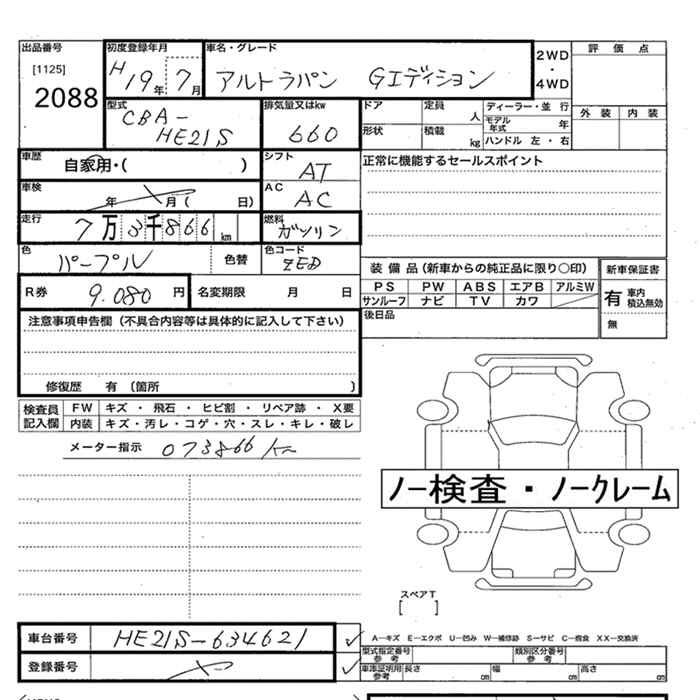 出品番号 初度登録年月 車名・グレード 2WD ・ 4WD 評価点
[1125]
2088 H19年 7月 アルトラパン Gエディション
型式 CBA-HE21S 排気量又はkw 660 ドア 定員 人 ディーラー・並行 外装 内装
形状 積載 kg モデル年式 年 ハンドル 左・右
車歴 自家用・( ) シフト AT 正常に機能するセールスポイント
車検 年 月( 日) AC AC
走行 7万3千866km 燃料 ガソリン
色 パープル 色替 色コード ZED
装備品(新車からの純正品に限り〇印) 新車保証書
R券 9.080円 名変期限 月 日 PS PW ABS エアB アルミW 有 車内積込無効
サンルーフ ナビ TV カワ
注意事項申告欄(不具合内容等は具体的に記入して下さい) 後日品 無
修復歴 有 〔箇所 〕
検査員記入欄 FW キズ・飛石・ヒビ割・リペア跡・X要
内装 キズ・汚レ・コゲ・穴・スレ・キレ・破レ
メーター指示 073866 km
ノー検査・ノークレーム
スペアT
[ ]
車台番号 HE21S-634621 A—キズ E—エクボ U—凹み W—補修跡 S—サビ C—腐食 XX—交換済
型式指定番号 参考 類別区分番号 参考
登録番号 車庫証明用 参考 長さ cm 幅 cm 高さ cm